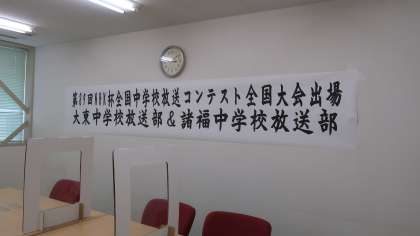 第41回NHK杯全国中学校放送コンテスト全国大会出場
大東中学校放送部＆諸福中学校放送部